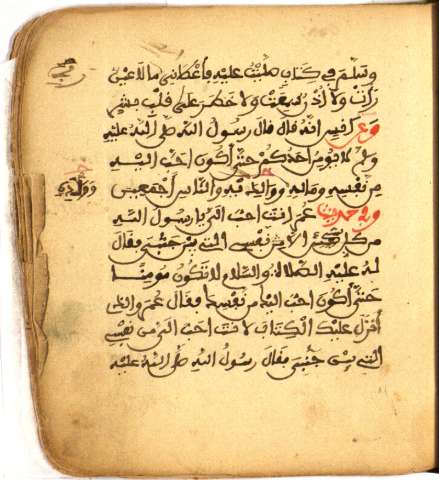 وسلم في كتاب صليت عليه فأعطاني ما لا عين
ربي
رأت ولا أذن سمعت ولا خطر على قلب بشر
وعن أنس أنه قال قال رسول الله صلى الله عليه
وسلم لا يؤمن أحدكم حتى أكون أحب إليه
من نفسه وماله ووالديه والناس أجمعين
وولده
وفي حديث عمر أنت أحب إلي يا رسول الله
من كل شيء إلا نفسي التي بين جنبي فقال
له عليه الصلاة والسلام لا تكون مؤمنا
حتى أكون أحب إليك من نفسك فقال عمر والذي
أنزل عليك الكتاب لأنت أحب إلي من نفسي
التي بين جنبي فقال رسول الله صلى الله عليه